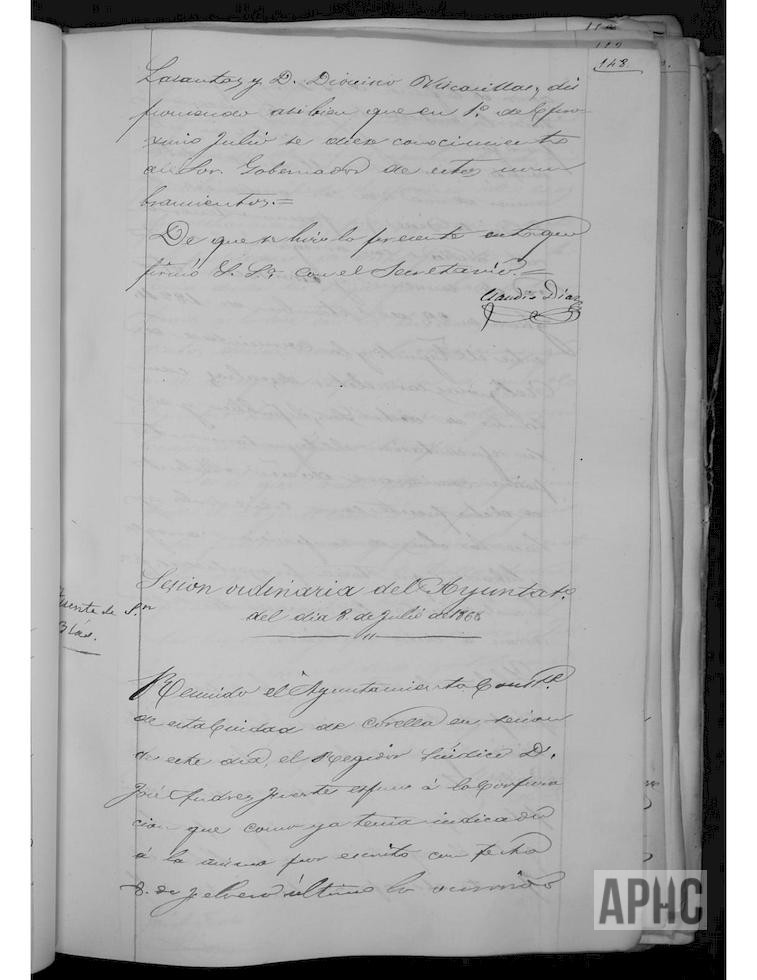 148
Lasantas y D. Dionisio Vizcarillas, dis
poniendo asi bien que en 1º. del pro-
ximo Julio se diese conocimiento
al Sor. Gobernador de estos nom
bramientos.=
De que se hizo la presente acta que
firmó S. Sª. con el Secretario.=
Claudio Diaz
Sesion ordinaria del Ayuntatº.
del dia 8 de Julio de 1868
Fuente de Sn
Blas.
Reunido el Ayuntamiento Constl.
de esta Ciudad de Corella en sesion
de este dia, el Regidor Sindico D.
José Andres Fuertes espuso á la Corpora
cion que como ya tenia indicado
á la misma por escrito con fecha
8. de febrero último la
APHC